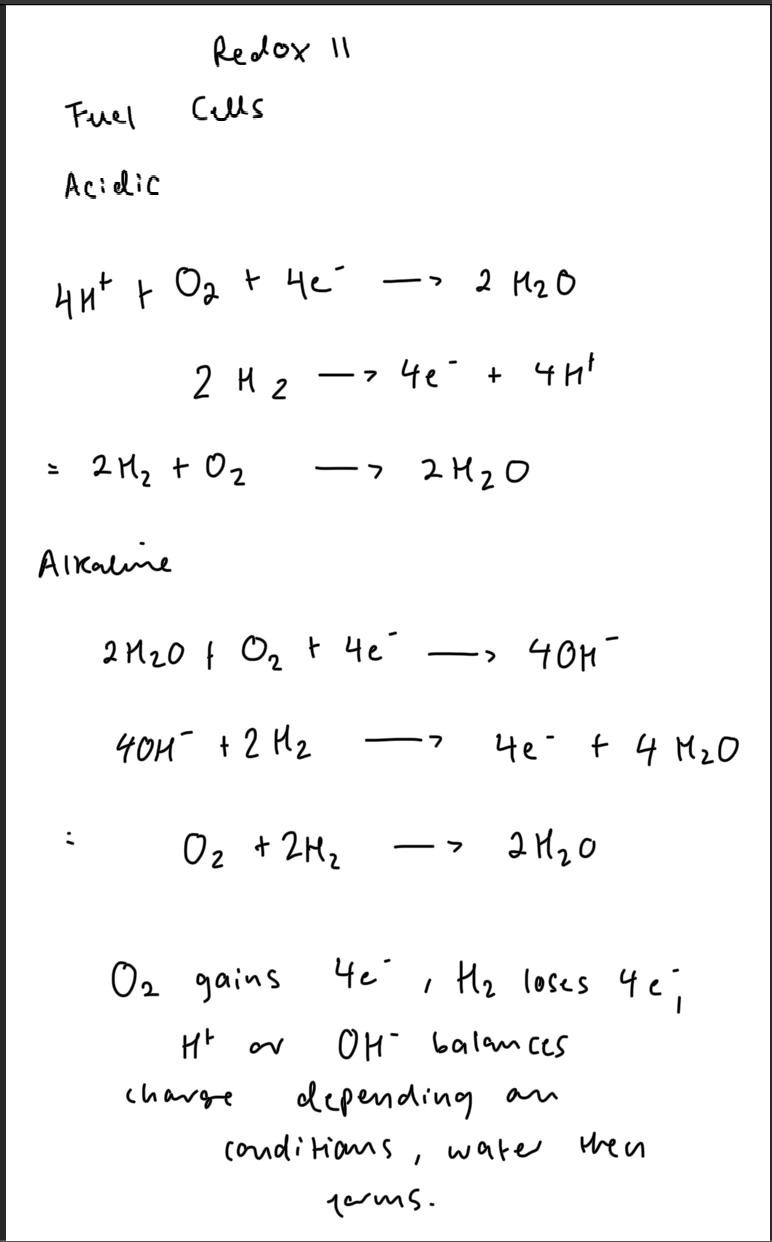 Redox II
Fuel Cells
Acidic
4H⁺ + O₂ + 4e⁻ → 2 H₂O
2 H₂ → 4e⁻ + 4H⁺
= 2H₂ + O₂ → 2H₂O
Alkaline
2H₂O + O₂ + 4e⁻ → 4OH⁻
4OH⁻ + 2 H₂ → 4e⁻ + 4 H₂O
: O₂ + 2H₂ → 2H₂O
O₂ gains 4e⁻, H₂ loses 4e⁻,
H⁺ or OH⁻ balances
charge depending on
conditions, water then
forms.